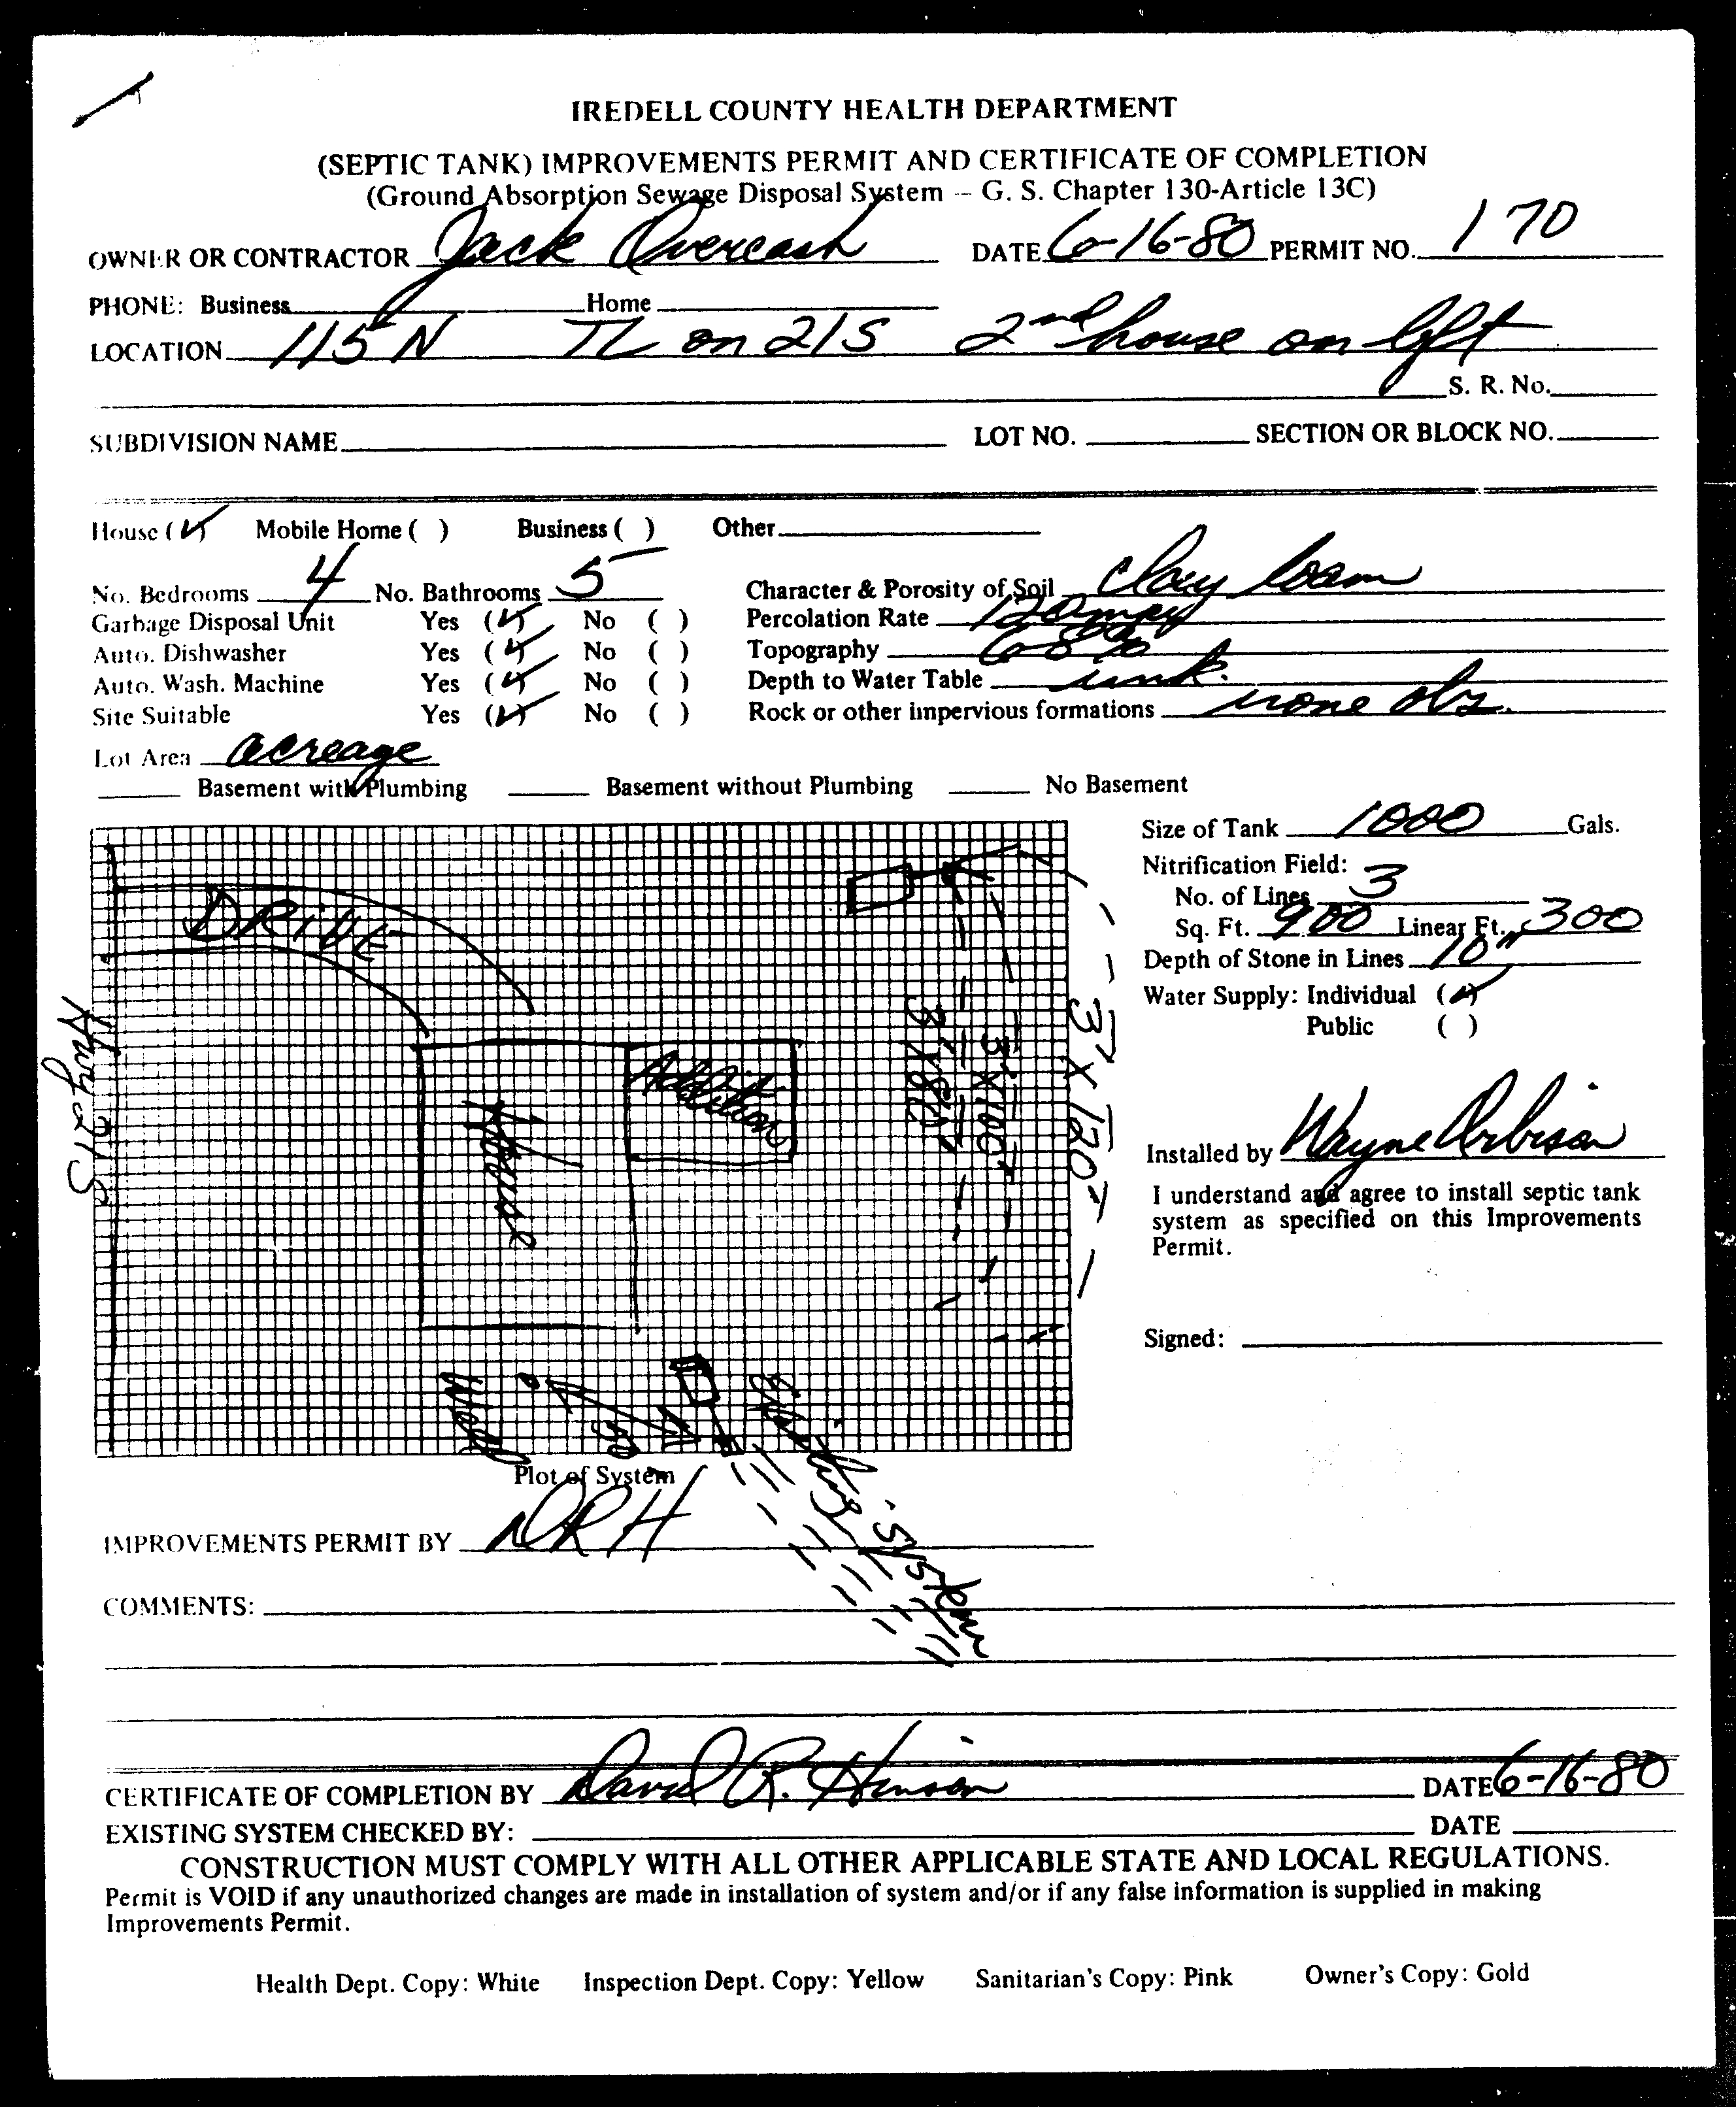 IREDELL COUNTY HEALTH DEPARTMENT
(SEPTIC TANK) IMPROVEMENTS PERMIT AND CERTIFICATE OF COMPLETION
(Ground Absorption Sewage Disposal System -- G. S. Chapter 130-Article 13C)
OWNER OR CONTRACTOR Jack Overcash DATE 6-16-80 PERMIT NO. 170
PHONE: Business Home
LOCATION 115 N TL on 21S 2nd house on left
S. R. No.
SUBDIVISION NAME LOT NO. SECTION OR BLOCK NO.
House (✓) Mobile Home ( ) Business ( ) Other
No. Bedrooms 4 No. Bathrooms 5 Character & Porosity of Soil clay loam
Garbage Disposal Unit Yes (✓) No ( ) Percolation Rate 120 mpy
Auto. Dishwasher Yes (✓) No ( ) Topography 6-8%
Auto. Wash. Machine Yes (✓) No ( ) Depth to Water Table unk.
Site Suitable Yes (✓) No ( ) Rock or other impervious formations none obs.
Lot Area acreage
Basement with Plumbing Basement without Plumbing No Basement
Size of Tank 1000 Gals.
Nitrification Field:
No. of Lines 3
Sq. Ft. 900 Linear Ft. 300
Depth of Stone in Lines 10"
Water Supply: Individual (✓)
Public ( )
DRIVE
Hwy 21S
House
Addition
3' X 80'
3' X 100'
3' X 120'
Well
50
Existing System
Installed by Wayne Orbison
I understand and agree to install septic tank
system as specified on this Improvements
Permit.
Signed:
Plot of System
IMPROVEMENTS PERMIT BY DRH
COMMENTS:
CERTIFICATE OF COMPLETION BY David R. Hinson DATE 6-16-80
EXISTING SYSTEM CHECKED BY: DATE
CONSTRUCTION MUST COMPLY WITH ALL OTHER APPLICABLE STATE AND LOCAL REGULATIONS.
Permit is VOID if any unauthorized changes are made in installation of system and/or if any false information is supplied in making
Improvements Permit.
Health Dept. Copy: White Inspection Dept. Copy: Yellow Sanitarian's Copy: Pink Owner's Copy: Gold